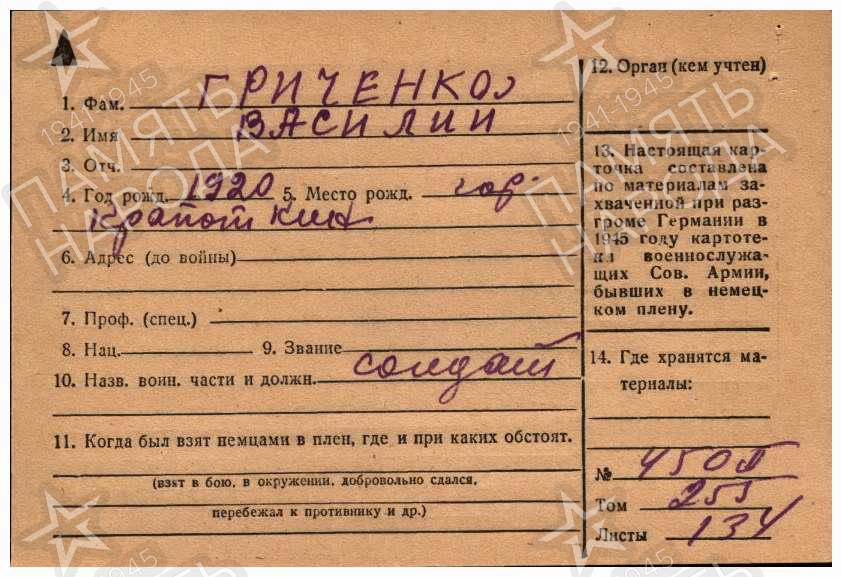 1. Фам. ГРИЧЕНКО
2. Имя ВАСИЛИЙ
3. Отч.
4. Год рожд. 1920 5. Место рожд. гор.
Крапоткин
6. Адрес (до войны)
7. Проф. (спец.)
8. Нац. 9. Звание солдат
10. Назв. воин. части и должн.
11. Когда был взят немцами в плен, где и при каких обстоят.
(взят в бою, в окружении, добровольно сдался,
перебежал к противнику и др.)
12. Орган (кем учтен)
13. Настоящая кар-
точка составлена
по материалам за-
хваченной при раз-
громе Германии в
1945 году картоте-
ки военнослужа-
щих Сов. Армии,
бывших в немец-
ком плену.
14. Где хранятся ма-
териалы:
№ 450П
Том 255
Листы 134
1941-1945
ПАМЯТЬ
НАРОДА